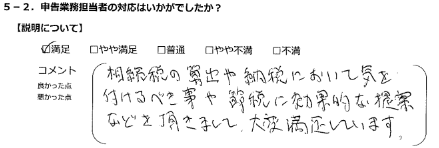 5-2. 申告業務担当者の対応はいかがでしたか?
【説明について】
☑満足 □やや満足 □普通 □やや不満 □不満
コメント
良かった点
悪かった点
相続税の算出や納税において気を
付けるべき事や節税に効果的な提案
などを頂きまして、大旅満足しています。